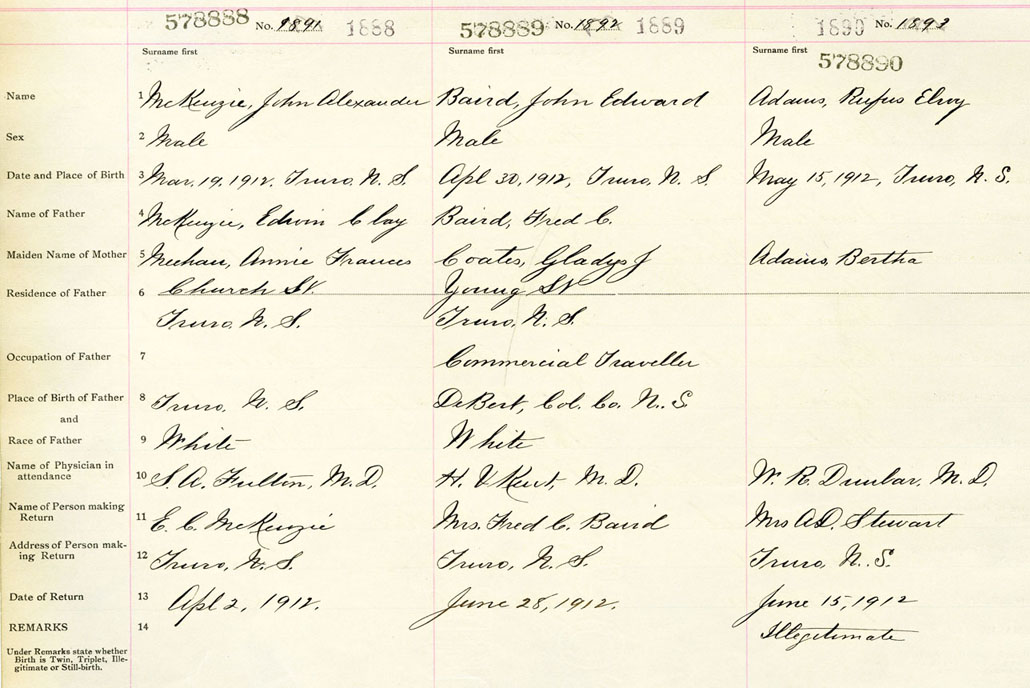 578888 No. 1891 1888 578889 No. 1892 1889 1890 No. 1893
Surname first Surname first Surname first 578890
Name 1 McKenzie, John Alexander Baird, John Edward Adams, Rufus Elroy
Sex 2 Male Male Male
Date and Place of Birth 3 Mar. 19, 1912. Truro, N. S. Apl 30, 1912, Truro, N. S. May 15, 1912, Truro, N. S.
Name of Father 4 McKenzie, Edwin Clay Baird, Fred C.
Maiden Name of Mother 5 Meehan, Annie Frances Coates, Gladys J Adams, Bertha
Residence of Father 6 Church St. Young St
Truro, N. S. Truro, N. S.
Occupation of Father 7 Commercial Traveller
Place of Birth of Father 8 Truro, N. S. DeBert, Col. Co. N. S
and
Race of Father 9 White White
Name of Physician in
attendance 10 S. A. Fulton, M. D. H. V Kent, M. D. W. R. Dunbar, M. D.
Name of Person making
Return 11 E. C. McKenzie Mrs. Fred C. Baird Mrs A.D. Stewart
Address of Person mak-
ing Return 12 Truro, N. S. Truro, N. S. Truro, N. S.
Date of Return 13 Apl 2, 1912. June 28, 1912. June 15, 1912
REMARKS 14 Illegitimate
Under Remarks state whether
Birth is Twin, Triplet, Ille-
gitimate or Still-birth.